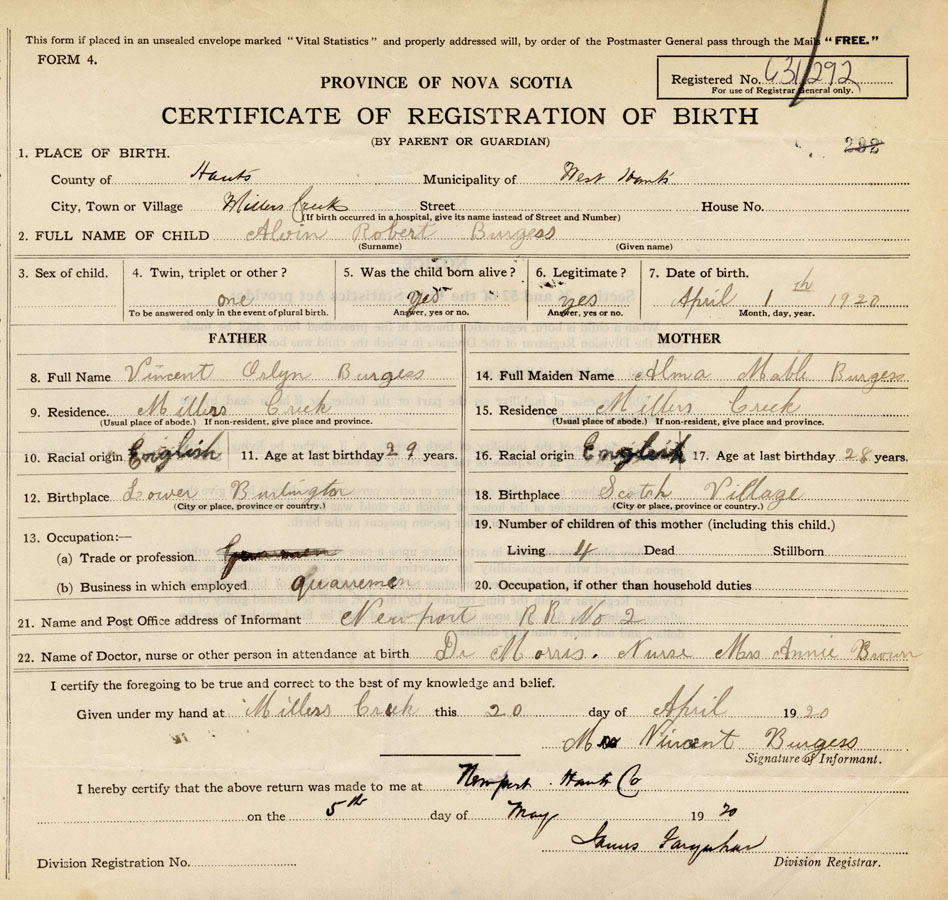 This form if placed in an unsealed envelope marked "Vital Statistics" and properly addressed will, by order of the Postmaster General pass through the Mails "FREE."
FORM 4.
Registered No. 631292
For use of Registrar General only.
PROVINCE OF NOVA SCOTIA
CERTIFICATE OF REGISTRATION OF BIRTH
(BY PARENT OR GUARDIAN)
282
1. PLACE OF BIRTH.
County of Hants Municipality of West Hants
City, Town or Village Millers Creek Street House No.
(If birth occurred in a hospital, give its name instead of Street and Number)
2. FULL NAME OF CHILD Alvin Robert Burgess
(Surname) (Given name)
3. Sex of child. 4. Twin, triplet or other? 5. Was the child born alive? 6. Legitimate? 7. Date of birth.
one yes yes April 1th 1920
To be answered only in the event of plural birth. Answer, yes or no. Answer, yes or no. Month, day, year.
FATHER MOTHER
8. Full Name Vincent Orlyn Burgess 14. Full Maiden Name Alma Mable Burgess
9. Residence. Millers Creek 15. Residence Millers Creek
(Usual place of abode.) If non-resident, give place and province. (Usual place of abode.) If non-resident, give place and province.
10. Racial origin English 11. Age at last birthday 29 years. 16. Racial origin English 17. Age at last birthday 28 years.
12. Birthplace Lower Burlington 18. Birthplace Scotch Village
(City or place, province or country.) (City or place, province or country.)
19. Number of children of this mother (including this child.)
13. Occupation:—
(a) Trade or profession Living 4 Dead Stillborn
(b) Business in which employed quarremen 20. Occupation, if other than household duties
21. Name and Post Office address of Informant Newport R.R. No 2
22. Name of Doctor, nurse or other person in attendance at birth Dr Morris. Nurse Mrs Annie Brown
I certify the foregoing to be true and correct to the best of my knowledge and belief.
Given under my hand at Millers Creek this 20 day of April 1920
Vincent Burgess
Signature of Informant.
I hereby certify that the above return was made to me at Newport. Hants Co
on the 5th day of May 1920
James Farquhar
Division Registration No. Division Registrar.